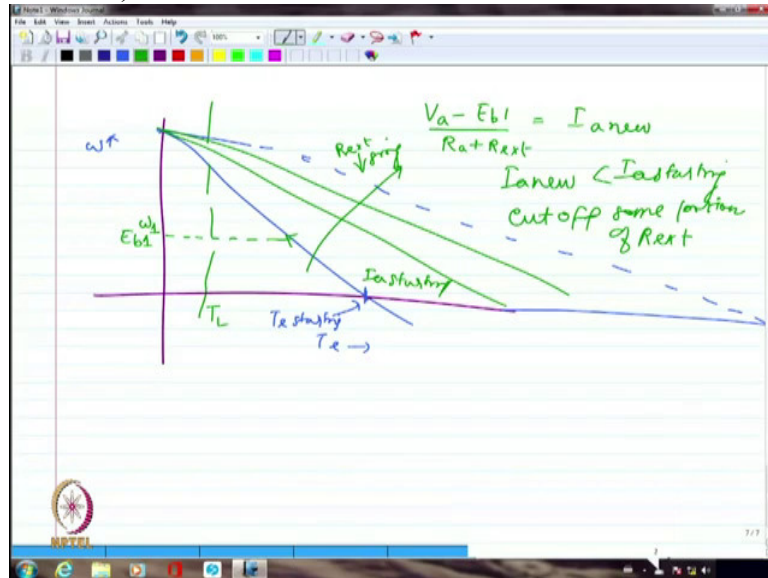 Note1 - Windows Journal
File Edit View Insert Actions Tools Help
100%
B I
ω↑
Rext
↓ sing
Va - Eb1 / Ra + Rext = Ia new
Ia new < Ia starting
cut off some portion
of Rext
ω1
Eb1
Ia starting
TL
Te starting
Te →
NPTEL
7/7
2